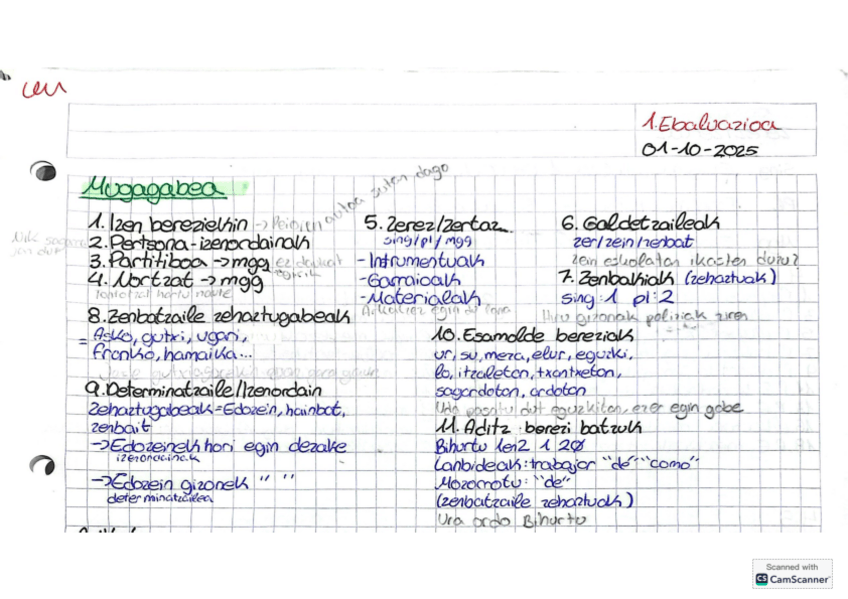 1. Ebaluazioa
01-10-2025
Mugagabea
1. Izen bereziekin → autoa suten dago
2. Pertsona-izenordainak
3. Partitiboa → mgg ez daukat
4. Nortzat → mgg
tontotzat hartu naute
5. Zerez/zertaz
sing/pl/mgg
- Intrumentuak
- Garraioak
- Materialak
6. Galdetzaileak
zer/zein/zenbat
zein eskolatan ikasten duzu?
7. Zenbakiak (zehaztuak)
sing: 1 pl: 2
Hiru gizonak poliziak ziren
8. Zenbatzaile zehaztugabeak
= Asko, gutxi, ugari,
franko, hamaika...
9. Determinatzaile/Izenordain
zehaztugabeak = Edozein, hainbat,
zenbait
→ Edozeinek hori egin dezake
izenordainak
→ Edozein gizonek " "
determinatzailea
10. Esamolde bereziak
ur, su, meza, elur, eguzki,
lo, itzaletan, txantxetan,
sagardotan, ardotan
Uda pasatu dut eguzkitan, ezer egin gabe
11. Aditz berezi batzuk
Bihurtu
Lanbideak: trabajar "de" "como"
Mozorrotu: "de"
(zenbatzaile zehaztuak)
Ura ardo Bihurtu
Scanned with
CS CamScanner